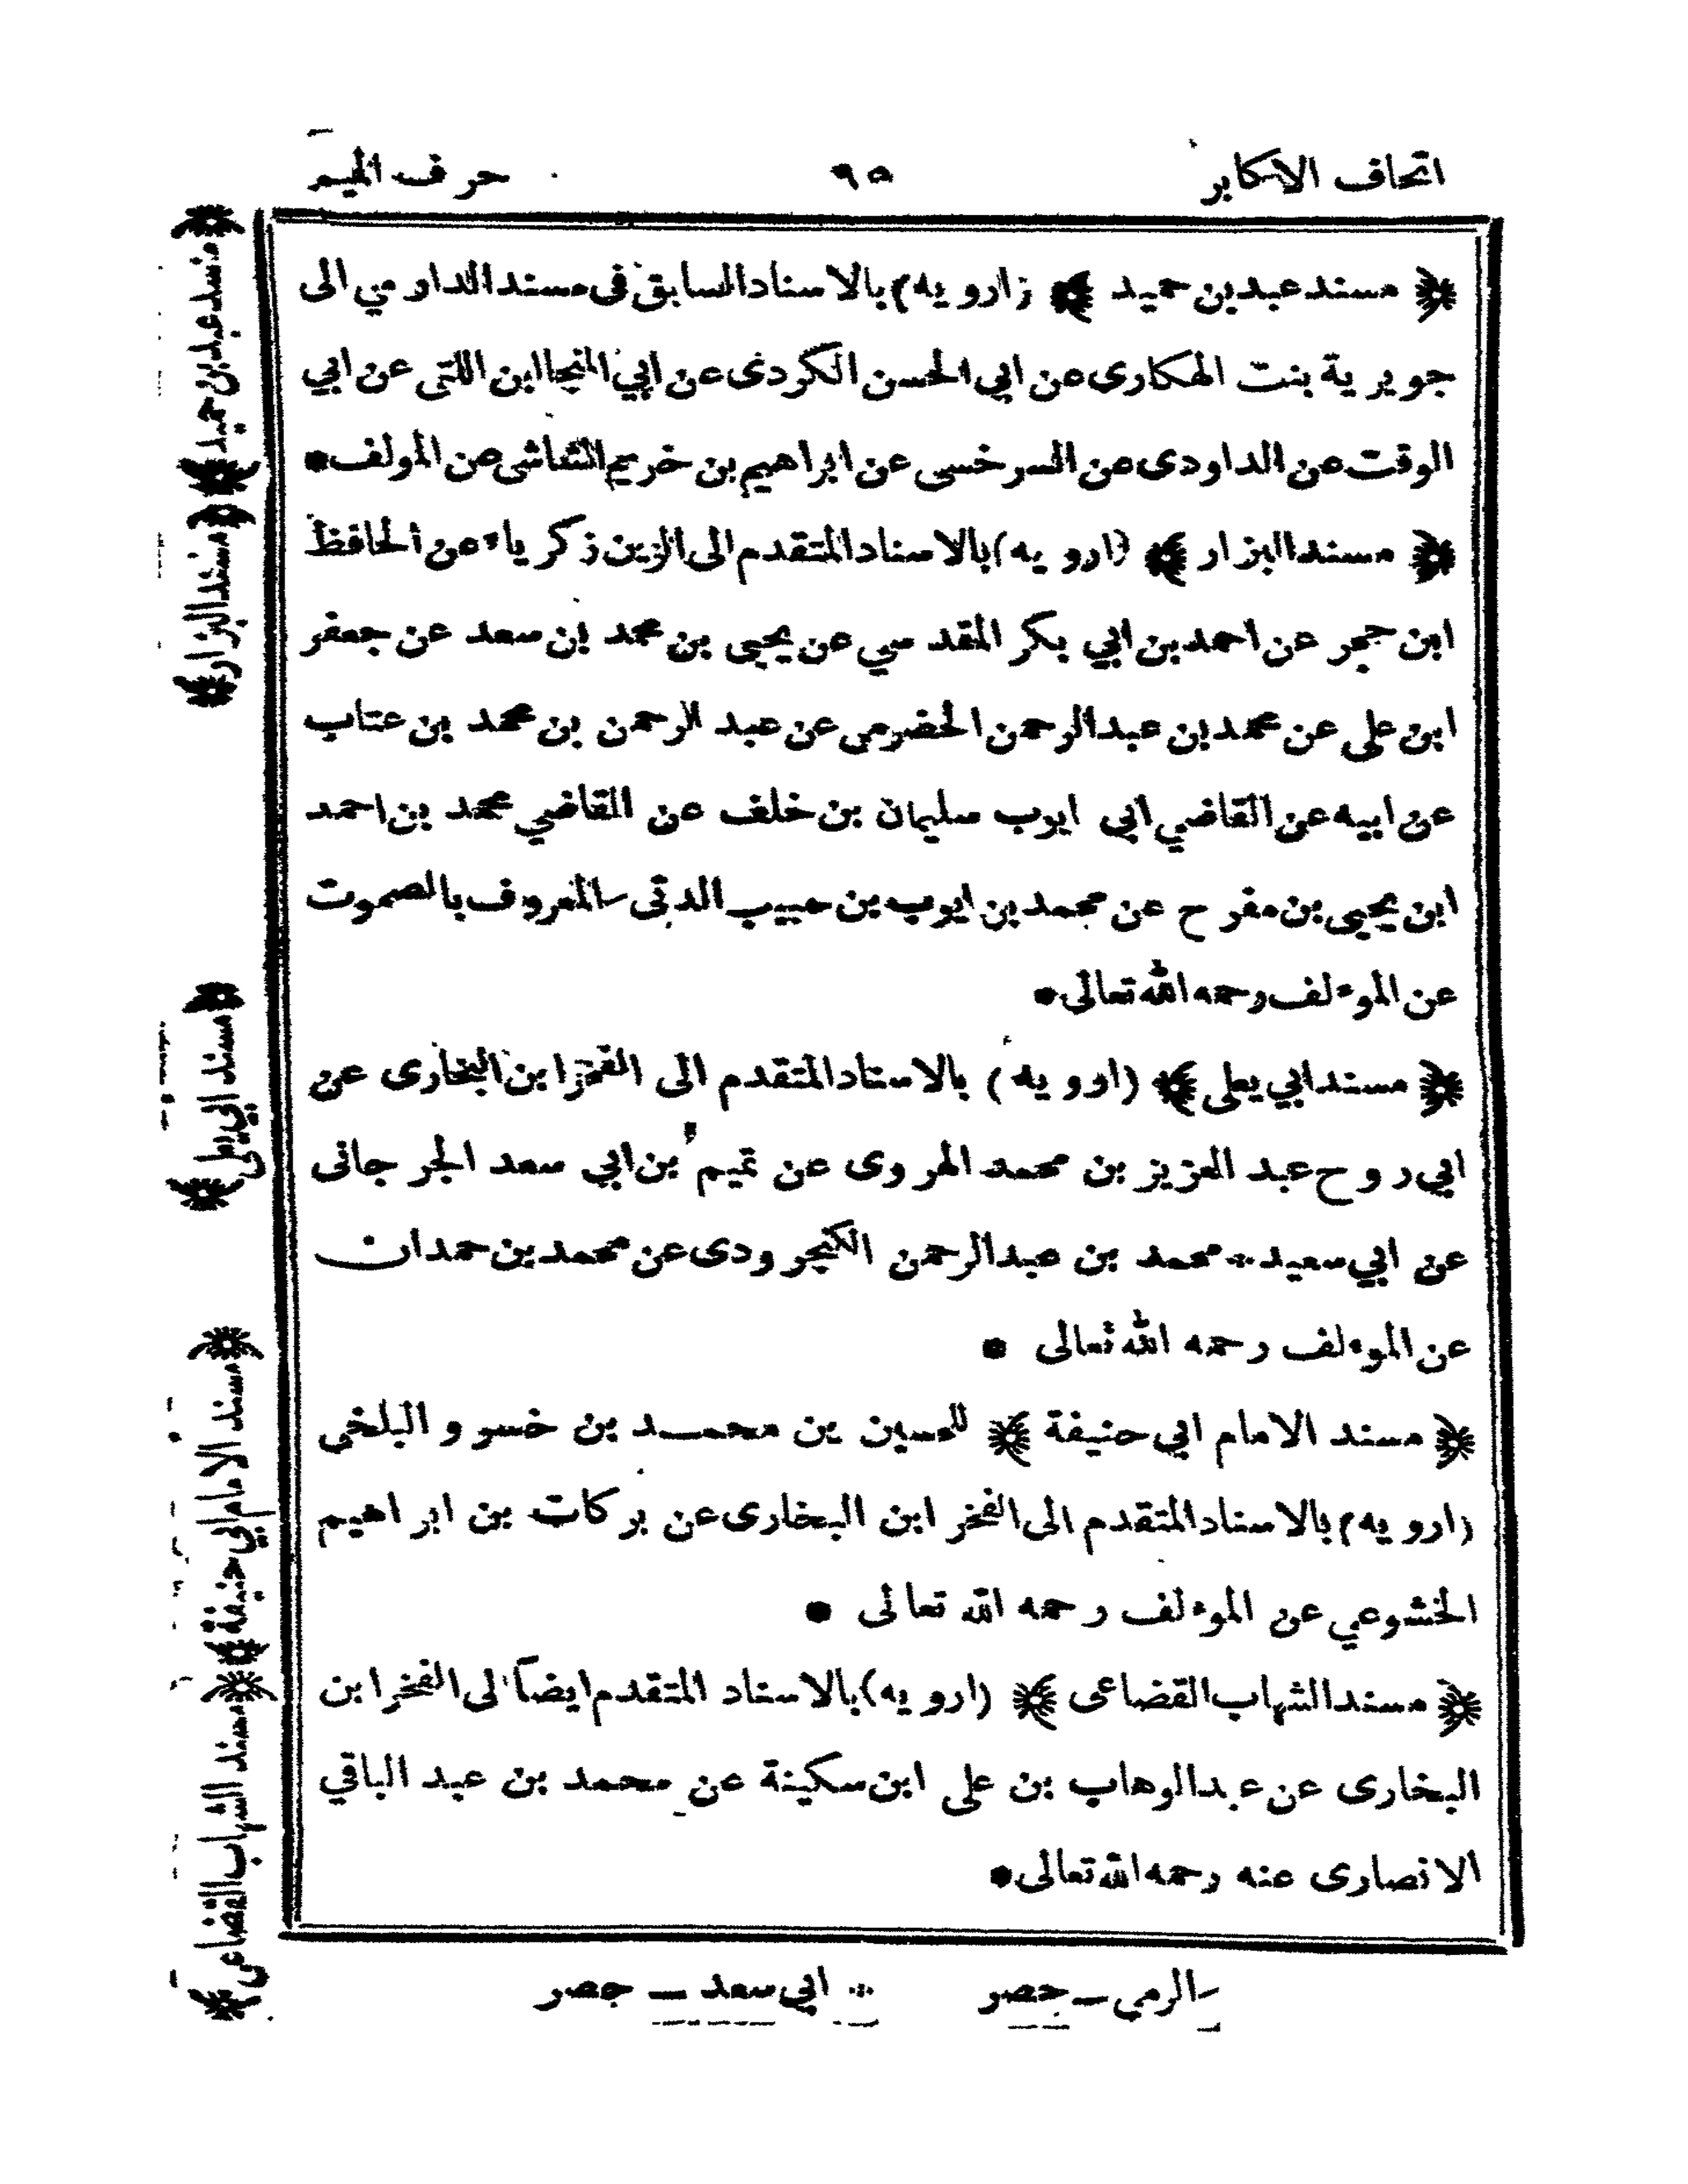 اتحاف الاكابر
٩٥
حرف الميم
﴿ مسند عبد بن حميد ﴾ (ارويه) بالاسناد السابق فى مسند الدارمي الى
جويرية بنت الهكارى عن ابي الحسن الكردى عن ابي المنجا ابن اللتى عن ابي
الوقت عن الداودى عن السرخسى عن ابراهيم بن خريم الشاشى عن المولف *
﴿ مسند البزار ﴾ (ارويه) بالاسناد المتقدم الى الزين زكرياء عن الحافظ
ابن حجر عن احمد بن ابي بكر المقدسي عن يحيى بن محمد بن سعد عن جعفر
ابن على عن محمد بن عبد الرحمن الحضرمى عن عبد الرحمن بن محمد بن عتاب
عن ابيه عن القاضي ابى ايوب سليمان بن خلف عن القاضي محمد بن احمد
ابن يحيى بن مفرح عن محمد بن ايوب بن حبيب الدقى المعروف بالصموت
عن الموءلف رحمه الله تعالى *
﴿ مسند ابي يعلى ﴾ (ارويه) بالاسناد المتقدم الى الفخر ابن البخارى عن
ابي روح عبد العزيز بن محمد الهروى عن تميم بن ابي سعد الجرجانى
عن ابي سعيد ∴ محمد بن عبد الرحمن الكنجرودى عن محمد بن حمدان
عن الموءلف رحمه الله تعالى *
﴿ مسند الامام ابي حنيفة ﴾ للحسين بن محمد بن خسرو البلخي
(ارويه) بالاسناد المتقدم الى الفخر ابن البخارى عن بركات بن ابراهيم
الخشوعي عن الموءلف رحمه الله تعالى *
﴿ مسند الشهاب القضاعى ﴾ (ارويه) بالاسناد المتقدم ايضاً الى الفخر ابن
البخارى عن عبد الوهاب بن على ابن سكينة عن محمد بن عبد الباقي
الانصارى عنه رحمه الله تعالى *
الرمي — حصر
∴ ابي سعد — حصر
﴿ مسند عبد بن حميد ﴾
﴿ مسند البزار ﴾
﴿ مسند ابي يعلى ﴾
﴿ مسند الامام ابي حنيفة ﴾
﴿ مسند الشهاب القضاعى ﴾